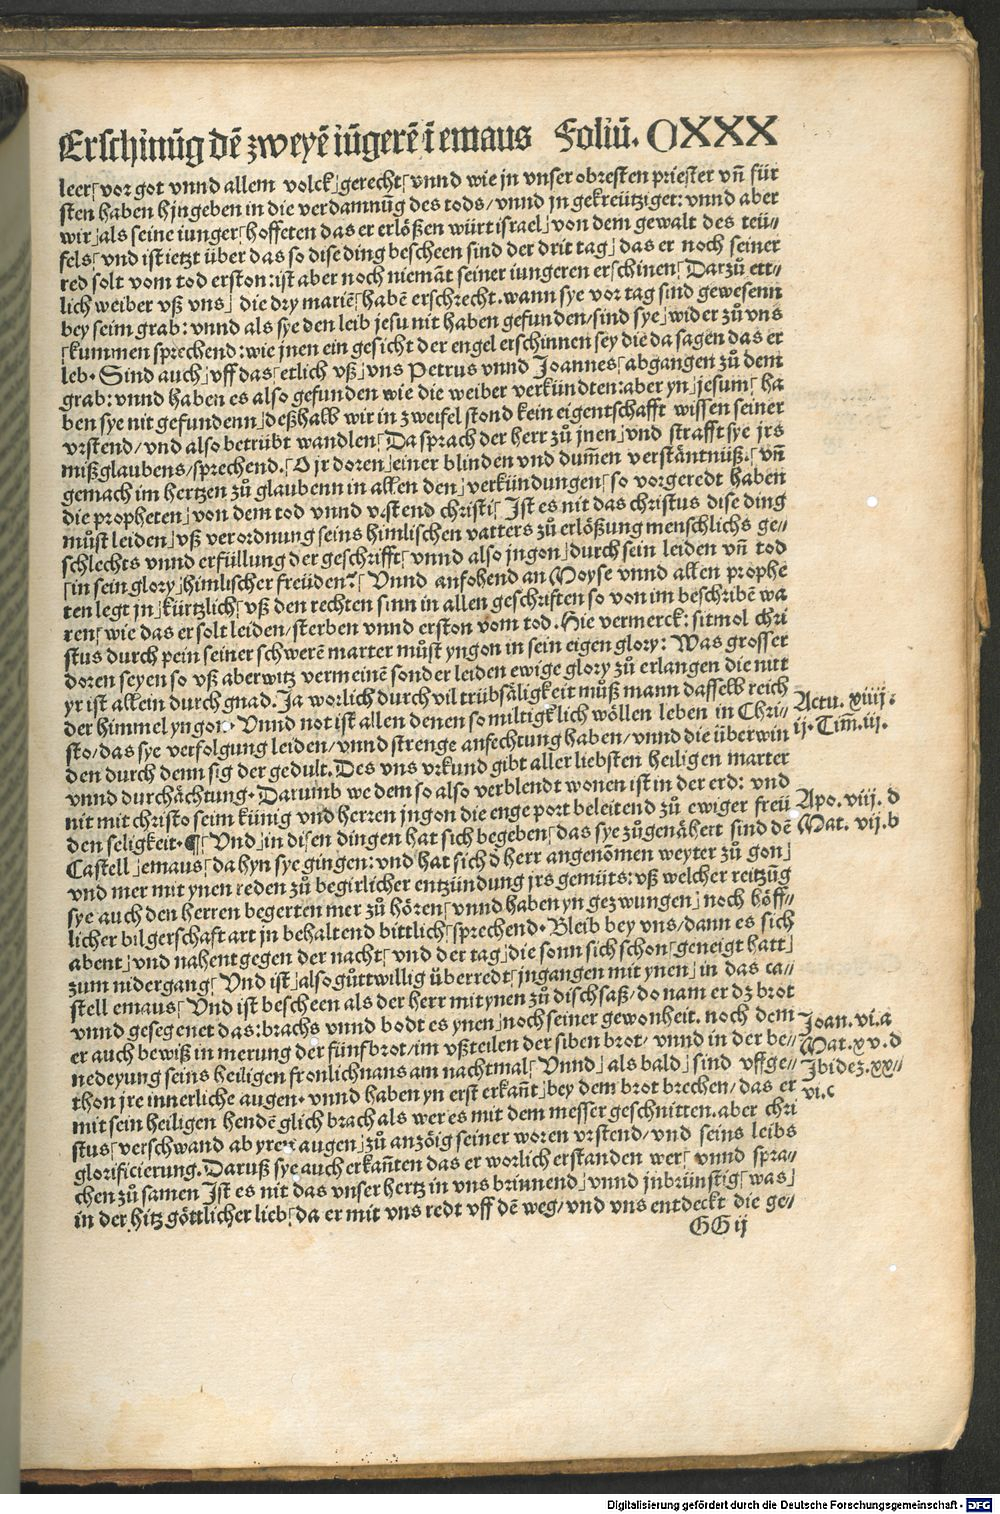 Erschinũg dẽ zweyẽ iũgerẽ ĩ emaus Foliũ. CXXX
leer⌈vor got vnnd allem volck⌋gerecht⌈vnnd wie jn vnser obresten priester vñ für
sten haben hjngeben in die verdamnũg des tods/vnnd jn gekreütziget: vnnd aber
wir⌋als seine iunger⌈hoffeten das er erlößen würt israel⌋von dem gewalt des teü⸗
fels⌈vnd ist ietzt über das so dise ding bescheen sind der drit tag⌋das er noch seiner
red solt vom tod erston: ist aber noch niemãt seiner iungeren erschinen⌈Darzů ett⸗
lich weiber vß vns⌋ die dry mariẽ⌈habẽ erschrecht. wann sye vor tag sind gewesenn
bey seim grab: vnnd als sye den leib jesu nit haben gefunden/sind sye⌋wider zů vns
⌈kummen sprechend: wie jnen ein gesicht der engel erschinnen sey die da sagen das er
leb. Sind auch⌋vff das⌈etlich vß⌋vns Petrus vnnd Joannes⌈abgangen zů dem
grab: vnnd haben es also gefunden wie die weiber verkündten: aber yn⌋jesum⌈ha
ben sye nit gefundenn⌋deßhalb wir in zweifel stond kein eigentschafft wissen seiner
vrstend/vnd also betrübt wandlen⌈Da sprach der herr zů jnen⌋vnd strafft sye jrs
mißglaubens/sprechend. ⌈O jr doren⌋einer blinden vnd dum̃en verstãntnüß. ⌈vñ
gemach im hertzen zů glaubenn in allen den⌋verkündungen⌈so vorgeredt haben
die propheten⌋von dem tod vnnd vrstend christi⌈Ist es nit das christus dise ding
můst leiden⌋vß verordnung seins himlischen vatters zů erlößung menschlichs ge⸗
schlechts vnnd erfüllung der geschrifft⌈vnnd also jngon⌋durch sein leiden vñ tod
⌈in sein glory⌋himlischer freüden? ⌈Vnnd anfohend an Moyse vnnd allen prophe
ten legt jn⌋kürtzlich⌈vß den rechten sinn in allen geschriften so von im beschribẽ wa
ren⌈wie das er solt leiden/sterben vnnd erston vom tod. Hie vermerck: sitmol chri
stus durch pein seiner schwerẽ marter můst yngon in sein eigen glory: Was grosser
doren seyen so vß aberwitz vermeinẽ sonder leiden ewige glory zů erlangen die nitt
yr ist allein durch gnad. Ja worlich durch vil trübsäligkeit můß mann dasselb reich
der himmel yngon. Vnnd not ist allen denen so miltigklich wöllen leben in Chri⸗
sto/das sye verfolgung leiden/vnnd strenge anfechtung haben/vnnd die überwin
den durch denn sig der gedult. Des vns vrkund gibt aller liebsten heiligen marter
vnnd durchächtung. Darumb we dem so also verblendt wonen ist in der erd: vnd
nit mit christo seim künig vnd herren jngon die enge port beleitend zů ewiger freü
den seligkeit. ¶⌈Vnd⌋in disen dingen hat sich begeben⌈das sye zůgenähert sind dẽ
Castell⌋emaus⌈da hyn sye gingen: vnd hat sich d̕ herr angenõmen weyter zů gon⌋
vnd mer mit ynen reden zů begirlicher entzündung jrs gemüts: vß welcher reitzũg
sye auch den herren begerten mer zů hören⌈vnnd haben yn gezwungen⌋noch höff⸗
licher bilgerschaft art jn behaltend bittlich⌈sprechend. Bleib bey vns/dann es sich
abent⌋vnd nahent gegen der nacht⌈vnd der tag⌋die sonn sich schon⌈geneigt hatt⌋
zum nidergang⌈Vnd ist⌋also gůttwillig überredt⌈jngangen mit ynen⌋in das ca⸗
stell emaus⌈Vnd ist bescheen als der herr mit ynen zů disch saß/do nam er dz brot
vnnd gesegenet das: brachs vnnd bodt es ynen⌋noch seiner gewonheit. noch dem
er auch bewiß in merung der fünf brot/im vßteilen der siben brot/vnnd in der be⸗
nedeyung seins heiligen fronlichnans am nachtmal⌈Vnnd⌋als bald⌈sind vffge⸗
thon jre innerliche augen. vnnd haben yn erst erkañt⌋bey dem brot brechen/das er
mit sein heiligen hendẽ glich brach als wer es mit dem messer geschnitten. aber chri
stus⌈verschwand ab yren augen⌋zů anzöig seiner woren vrstend/vnd seins leibs
glorificierung. Daruß sye auch erkañten das er worlich erstanden wer⌈vnnd spra⸗
chen zů samen Ist es nit das vnser hertz in vns brinnend⌋vnnd jnbrünstig⌈was⌋
in der hitz göttlicher lieb⌈da er mit vns redt vff dẽ weg/vnd vns entdeckt die ge⸗
GG ij
Actu. xiiij.
ij. Tim̃. iij.
Apo. viij. d
Mat. vij. b
Joan. vi. a
Mat. xv. d
Ibidez. xx⸗
vi. c
Digitalisierung gefördert durch die Deutsche Forschungsgemeinschaft - DFG